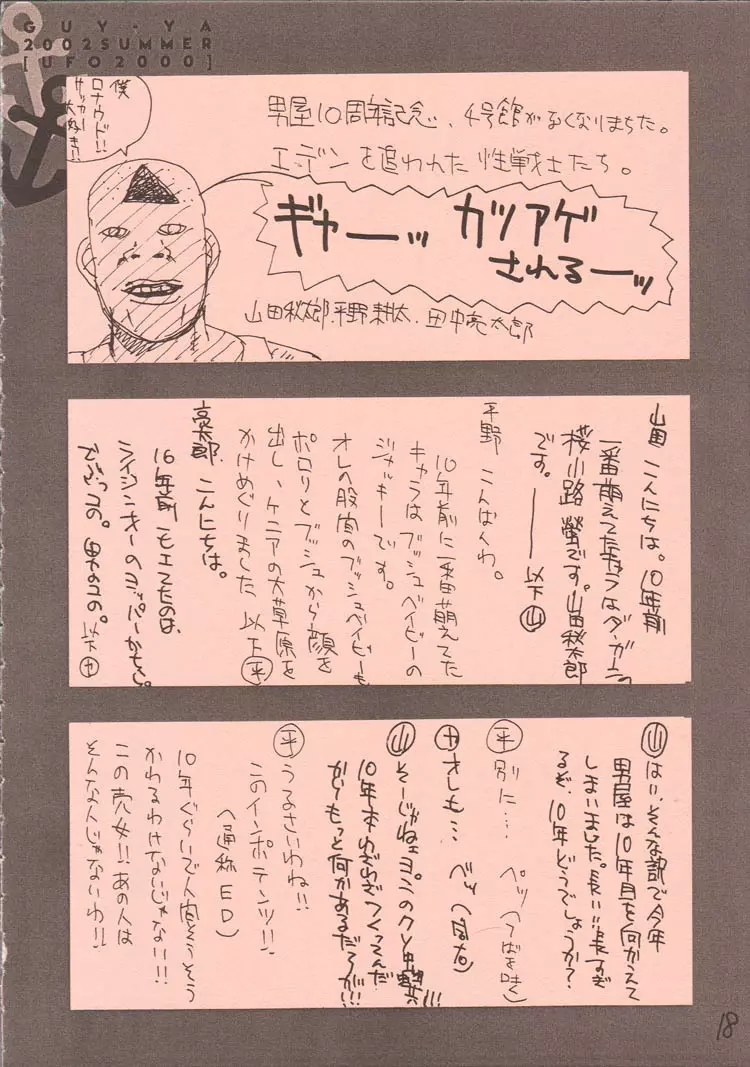 GUY-YA
2002SUMMER
[UFO2000]
僕
ロナウド!!
サッカー
大好き!!
男屋10周年記念、4号館がなくなりまちた。
エデンを追われた性戦士たち。
ギャーーッ カツアゲ
されるーーッ
山田秋太郎.平野耕太.田中亮太郎
山田 こんにちは。10年前
一番萌えてた
桜小路 螢です。山田秋太郎
です。――以下㊤
平野 こんばんわ。
10年前に一番萌えてた
キャラはブッシュベイビーの
ジャッキーです。
オレの股間のブッシュベイビーも
ポロリとブッシュから顔を
出し、ケニアの大草原を
かけめぐりました 以下(平)
亮太郎. こんにちは。
16年前 モエてたのは、
ライジンオーの
男のコの。以下
(山) はい、そんな訳で今年
男屋は10年目を向かえて
しまいました。長い!!長すぎ
るぞ、10年どうでしょうか?
(平) 別に… ペッ(つばを吐く)
オレも… ペッ
(山) そーじゃねェ
10年本わざわざつくってんだ
から、もっと何かあるだろが!!!
(平) うるさいわね!!
このインポテンツ!!
(通称ED)
10年ぐらいで人間そうそう
かわるわけないじゃない!!!
この売女!!あの人は
そんな人じゃないわ!!
18